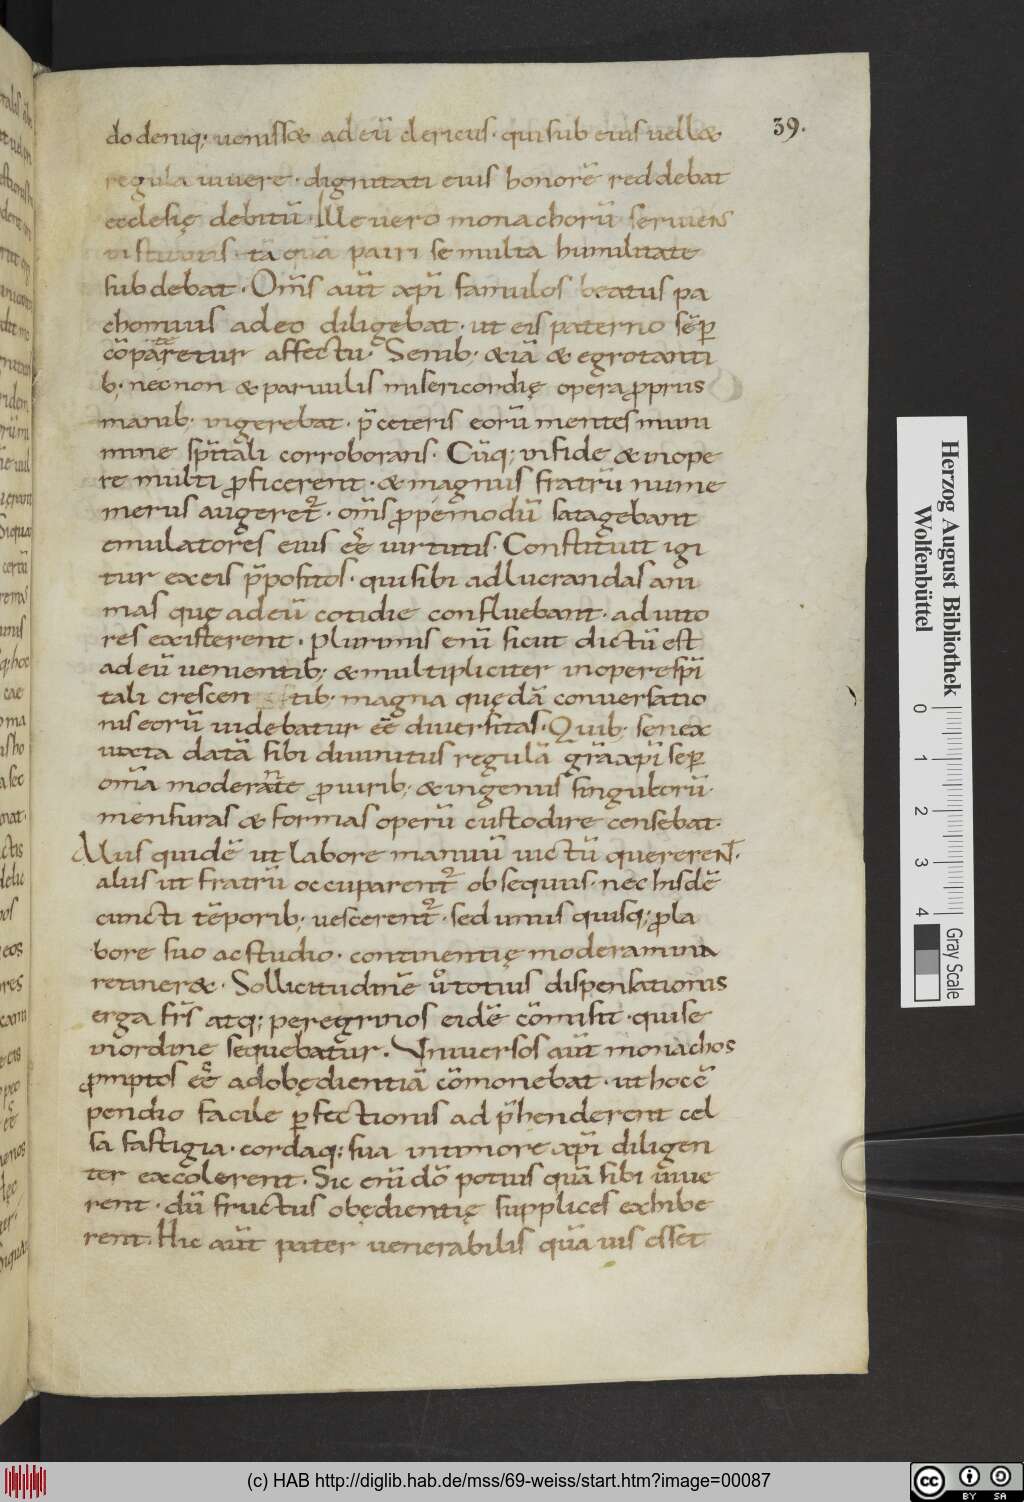 39.
do deniq; uenisset ad eū clericus. qui sub eius uellet
regula uiuere. dignitati eius honorē reddebat
ecclesię debitū. Ille uero monachorū seruiens
tā quā patri se multa humilitate
subdebat. Om̄s aūt xp̄i famulos beatus pa
chomius adeo diligebat. ut eis paterno sēp
cōpateretur affectu. Senib; &iā & egrotanti
b; nec non & paruulis misericordię opera ꝓprus
manib; ingerebat. p̄ceteris eorū mentes muni
mine sp̄itali corroborans. Cūq; in fide & in ope
re multi ꝓficerent. & magnus fratrū nume
merus augeret᷑. om̄s ꝓpemodū satagebant
emulatores eius eē uirtutis. Constituit igi
tur ex eis p̄positos. qui sibi ad lucrandas ani
mas quę ad eū cotidie confluebant. adiuto
res existerent. Plurimis enī sicut dictū est
ad eū uenientib; & multipliciter in opere sp̄i
tali crescen tib. magna quędā conuersatio
nis eorū uidebatur eē diuersitas. Quib; senex
iuxta datā sibi diuinitus regulā gr̄a xp̄i sēp
om̄a moderante ꝓ uirib; & ingeniis singulorū.
mensuras & formas operū custodire censebat.
Aliis quidē ut labore manuū uictū quererent.
aliis ut fratrū occuparent᷑ obsequiis. nec hisdē
cuncti tēporib; uescerent᷑. sed unus quisq; ꝓ la
bore suo ac studio. continentię moderamina
retineret. Sollicitudinē u̇ totius dispensationis
erga fr̄s atq; peregrinos eidē cōmisit. qui se
in ordine sequebatur. Uniuersos aūt monachos
ꝓmptos eē ad obędientiā cōmonebat. ut hoc cō
pendio facile ꝑfectionis ad p̄henderent cel
sa fastigia. cordaq; sua in timore xp̄i diligen
ter excolerent. Sic enī dō potius quā sibi uiue
rent. dū fructus obędientię supplices exhibe
rent. Hic aūt pater uenerabilis quā uis esset
Herzog August Bibliothek
Wolfenbüttel
0 1 2 3 4
Gray Scale
(c) HAB http://diglib.hab.de/mss/69-weiss/start.htm?image=00087
cc BY SA